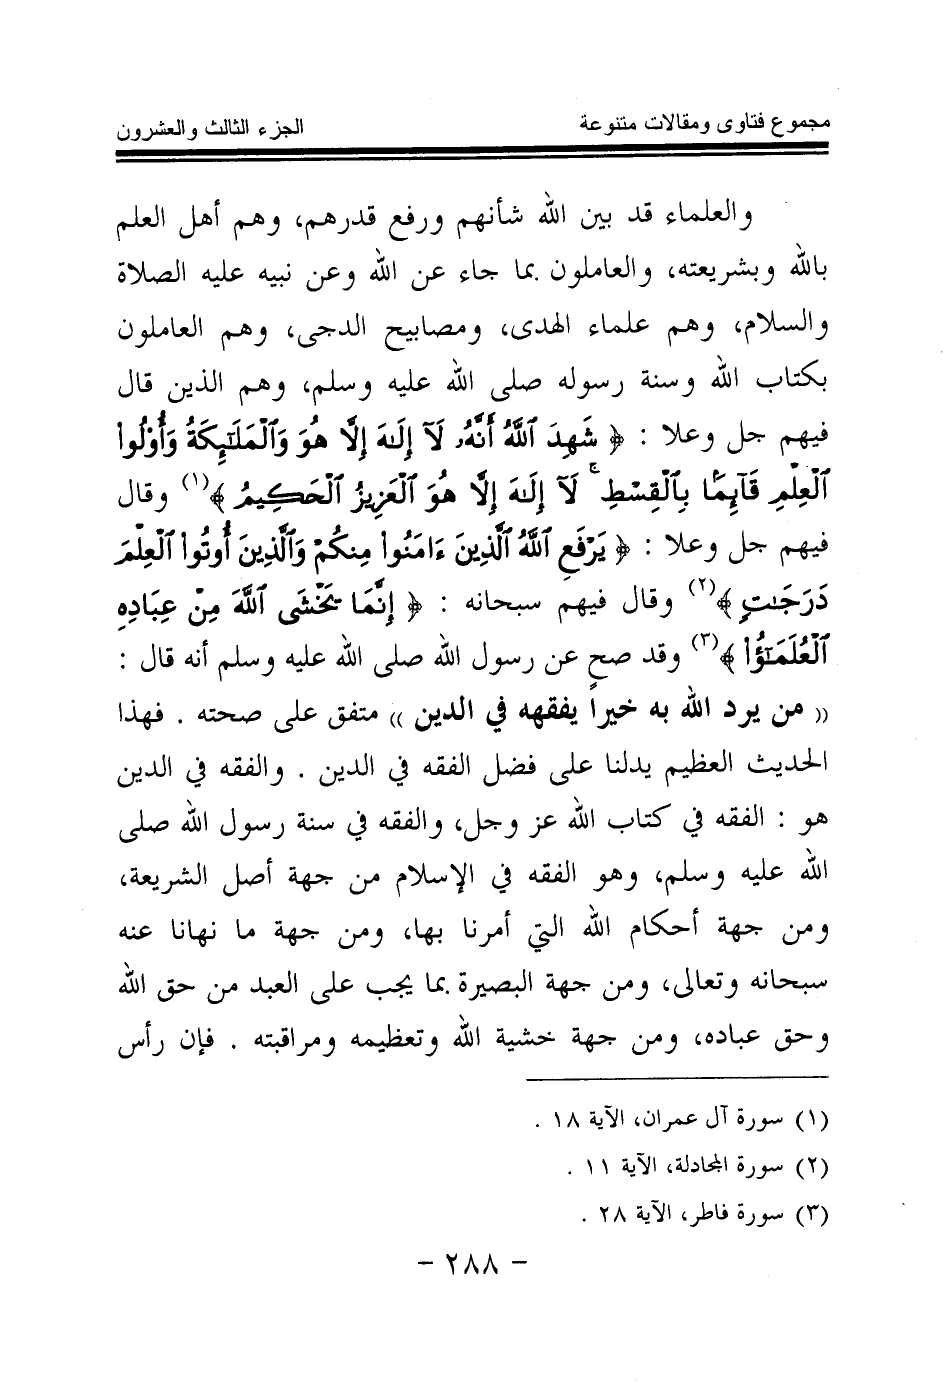 مجموع فتاوى ومقالات متنوعة الجزء الثالث والعشرون
والعلماء قد بين الله شأنهم ورفع قدرهم، وهم أهل العلم
بالله وبشريعته، والعاملون بما جاء عن الله وعن نبيه عليه الصلاة
والسلام، وهم علماء الهدى، ومصابيح الدجى، وهم العاملون
بكتاب الله وسنة رسوله صلى الله عليه وسلم، وهم الذين قال
فيهم جل وعلا : ﴿ شَهِدَ ٱللَّهُ أَنَّهُۥ لَآ إِلَٰهَ إِلَّا هُوَ وَٱلْمَلَٰٓئِكَةُ وَأُو۟لُوا۟
ٱلْعِلْمِ قَآئِمًۢا بِٱلْقِسْطِ ۚ لَآ إِلَٰهَ إِلَّا هُوَ ٱلْعَزِيزُ ٱلْحَكِيمُ ﴾(١) وقال
فيهم جل وعلا : ﴿ يَرْفَعِ ٱللَّهُ ٱلَّذِينَ ءَامَنُوا۟ مِنكُمْ وَٱلَّذِينَ أُوتُوا۟ ٱلْعِلْمَ
دَرَجَٰتٍ ﴾(٢) وقال فيهم سبحانه : ﴿ إِنَّمَا يَخْشَى ٱللَّهَ مِنْ عِبَادِهِ
ٱلْعُلَمَٰٓؤُا۟ ﴾(٣) وقد صح عن رسول الله صلى الله عليه وسلم أنه قال :
(( من يرد الله به خيراً يفقهه في الدين )) متفق على صحته . فهذا
الحديث العظيم يدلنا على فضل الفقه في الدين . والفقه في الدين
هو : الفقه في كتاب الله عز وجل، والفقه في سنة رسول الله صلى
الله عليه وسلم، وهو الفقه في الإسلام من جهة أصل الشريعة،
ومن جهة أحكام الله التي أمرنا بها، ومن جهة ما نهانا عنه
سبحانه وتعالى، ومن جهة البصيرة بما يجب على العبد من حق الله
وحق عباده، ومن جهة خشية الله وتعظيمه ومراقبته . فإن رأس
(١) سورة آل عمران، الآية ١٨ .
(٢) سورة المجادلة، الآية ١١ .
(٣) سورة فاطر، الآية ٢٨ .
- ٢٨٨ -